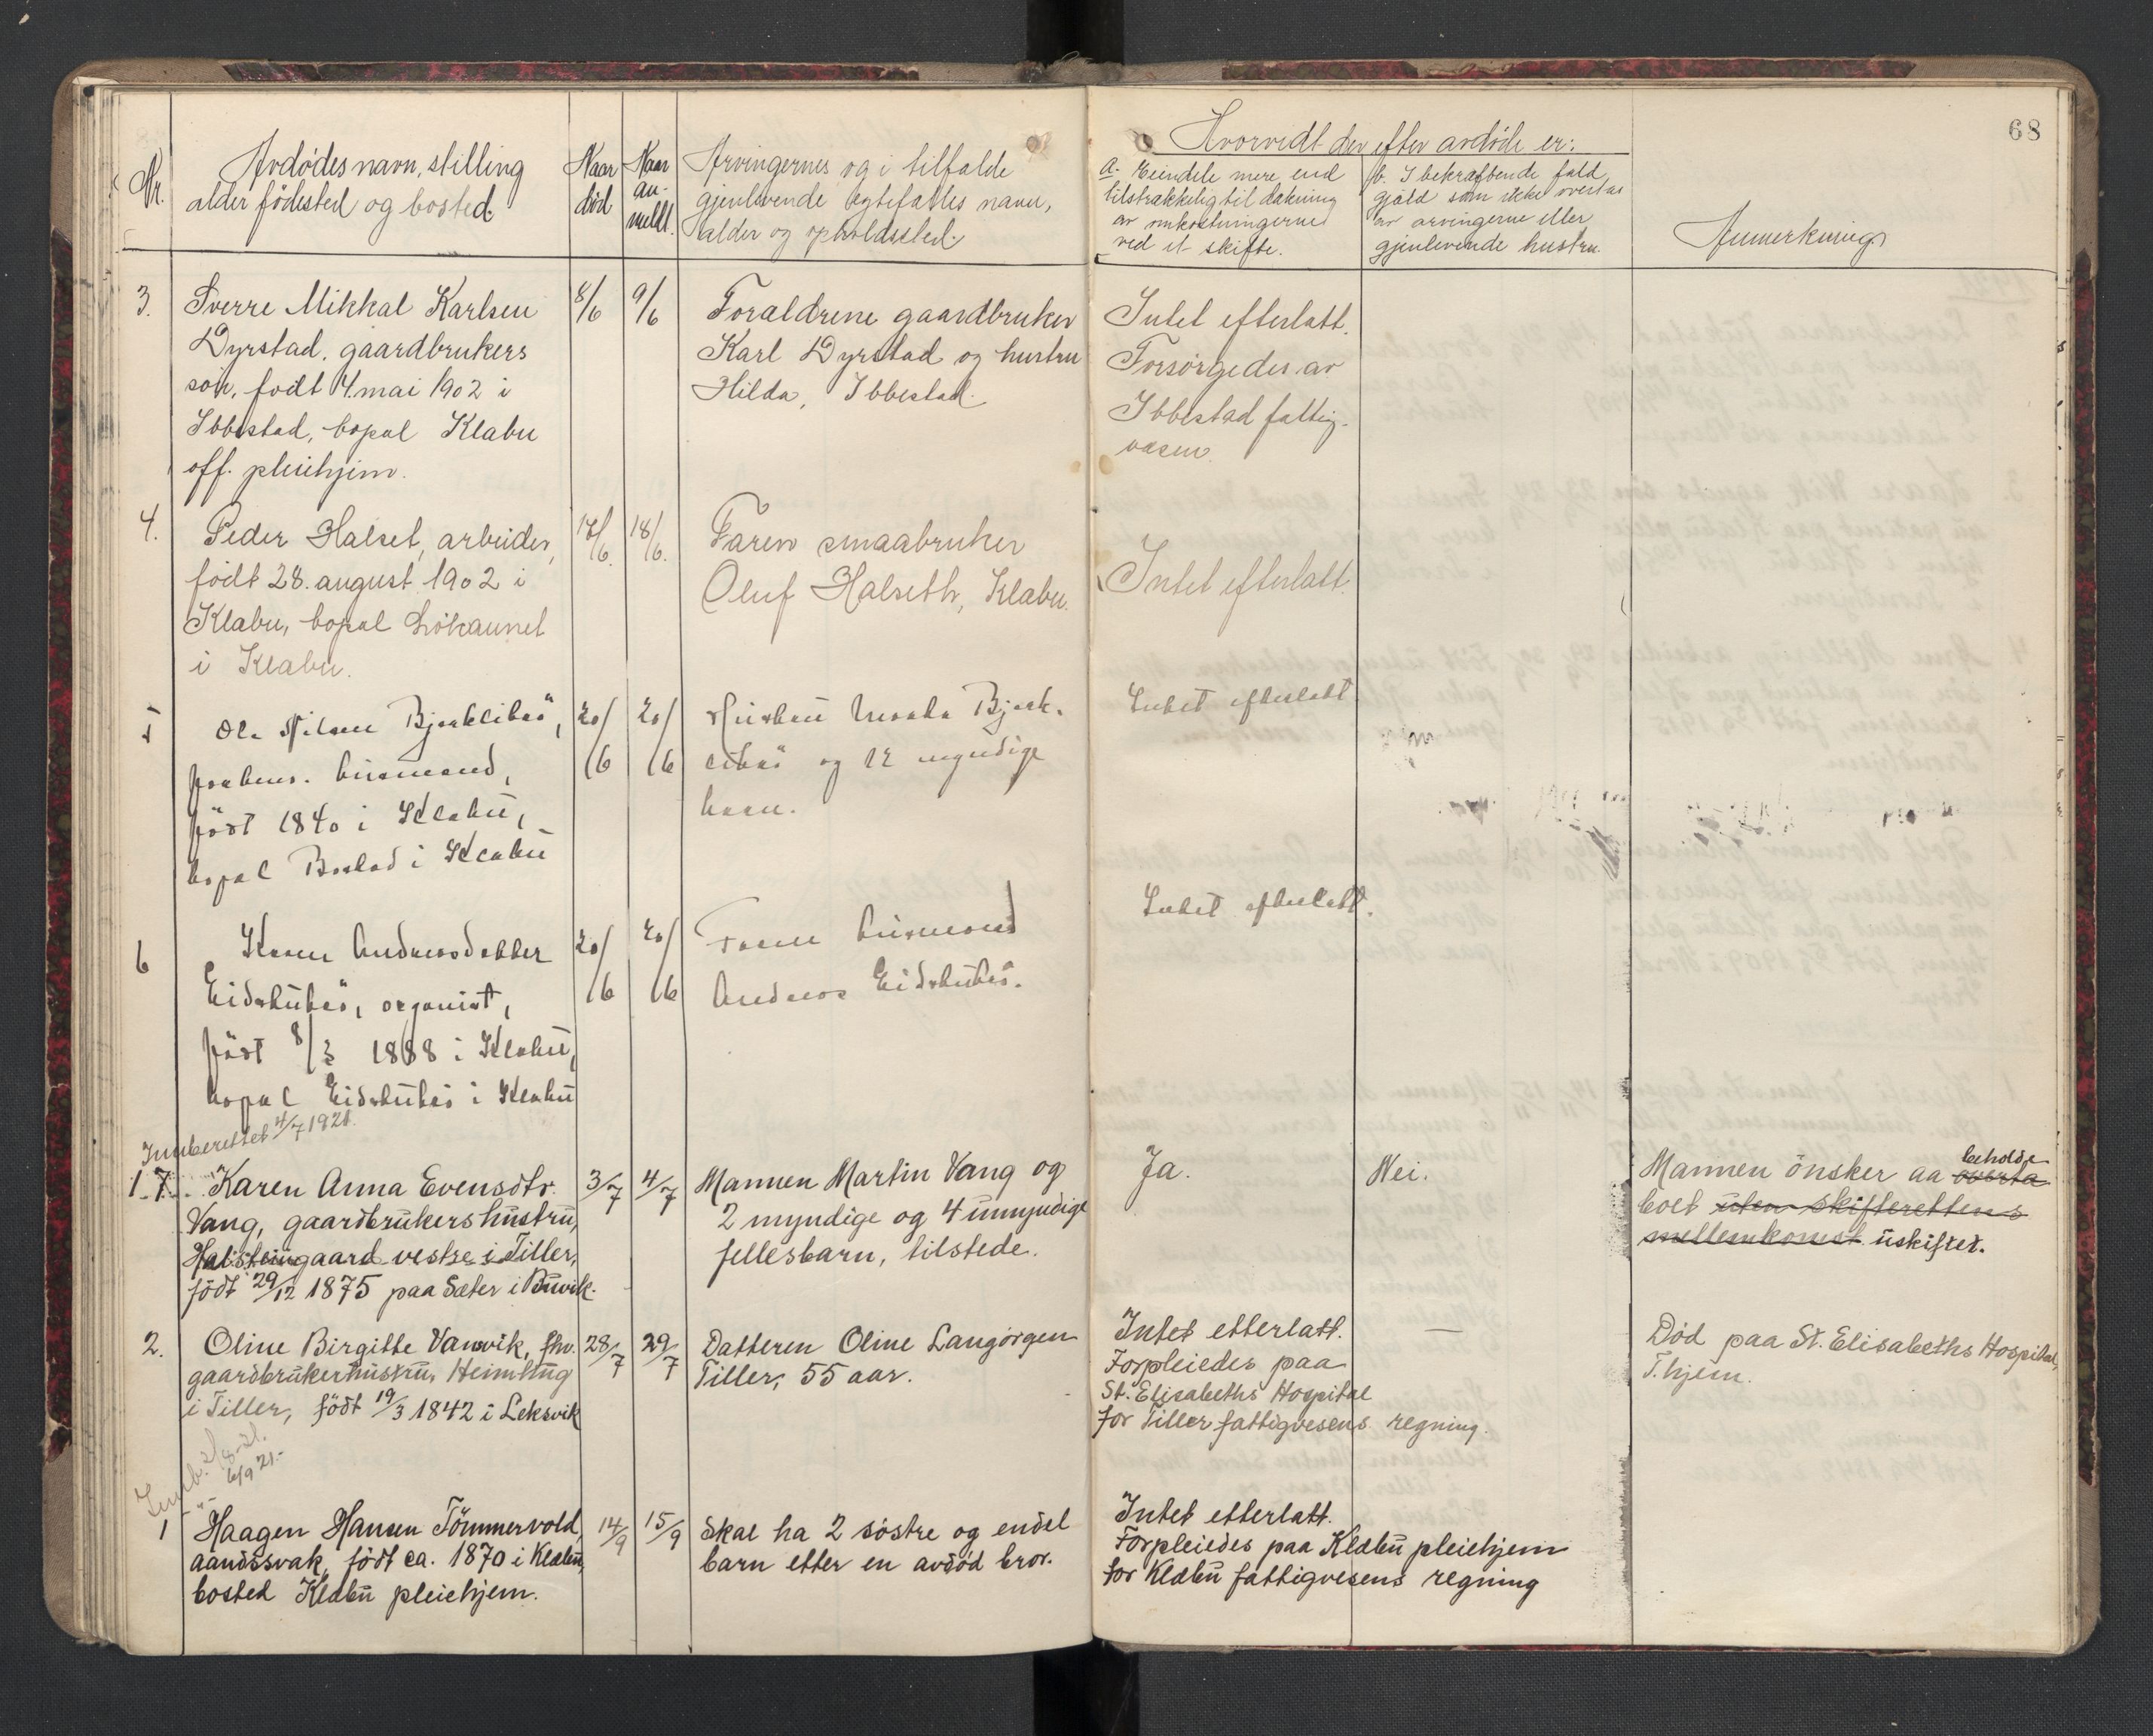 68
Nr.
Avdødes navn, stilling
alder fødested og bosted.
Naar
död
Naar
an-
meldt.
Arvingernes og i tilfælde
gjenlevende ægtefælles navn,
alder og opholdssted.
Hvorvidt der efter avdøde er:
a. Eiendele mere end
tilstrækkelig til dækning
av omkostningerne
ved et skifte.
b. I bekræftende fald,
gjæld som ikke overtas
av arvingerne eller
gjenlevende hustru.
Anmerkning
3.
Sverre Mikkal Karlsen
Dyrstad, gaardbrukers
søn, født 4. mai 1902 i
Ibbestad, bopæl Klæbu
off. pleiehjem.
8/6
9/6
Forældrene gaardbruker
Karl Dyrstad og hustru
Hilda, Ibbestad.
Intet efterlatt.
Forsørgedes av
Ibbestad fattig-
væsen.
4.
Peder Halset, arbeider,
født 28. august 1902 i
Klæbu, bopæl Løkaunet
i Klæbu.
17/6.
18/6.
Faren smaabruker
Oluf Halseth, Klæbu.
Intet efterlatt.
5
Ole Nilsen Bjørklibakk,
forhenv. husmand,
født 1840 i Klæbu,
bopæl Borstad i Klæbu
20/6
20/6
Hustru Marta Bjørk-
og 12 myndige
barn.
Intet efterlatt
6
Karen Andreasdatter
Eidstubakk, organist,
født 8/3 1888 i Klæbu,
bopæl Eidstubakk i Klæbu
20/6
20/6
Faren husmand
Andreas Eidstubakk.
Intet efterlatt.
Innberettet 4/7 1921.
1 7.
Karen Anna Evensdtr.
Vang, gaardbrukershustru,
Halsteingaard vestre i Tiller,
født 29/12 1875 paa Sæter i Buvik.
3/7
4/7
Mannen Martin Vang og
2 myndige og 4 umyndige
fellesbarn, tilstede.
Ja.
Nei.
beholde
Mannen ønsker aa overta
boet uten skifterettens
mellemkomst uskiftet.
2.
Oline Birgitte Vanvik, fhv.
gaardbrukerhustru, Heimhug
i Tiller, født 19/3 1842 i Leksvik
28/7
29/7
Datteren Oline Langørgen
Tiller, 55 aar.
Intet etterlatt.
Forpleiedes paa
St. Elisabeths Hospital
for Tiller fattigvesens regning.
—
Død paa St. Elisabeths Hospital,
T.hjem.
Innb. 2/8-21.
-"- 6/9 21.-
1
Haagen Hansen Tömmervold,
aandssvak, født ca. 1870 i Klæbu,
bosted Klæbu pleiehjem.
14/9
15/9
Skal ha 2 søstre og endel
barn etter en avdød bror.
Intet etterlatt.
Forpleiedes paa Klæbu pleiehjem
for Klæbu fattigvesens regning